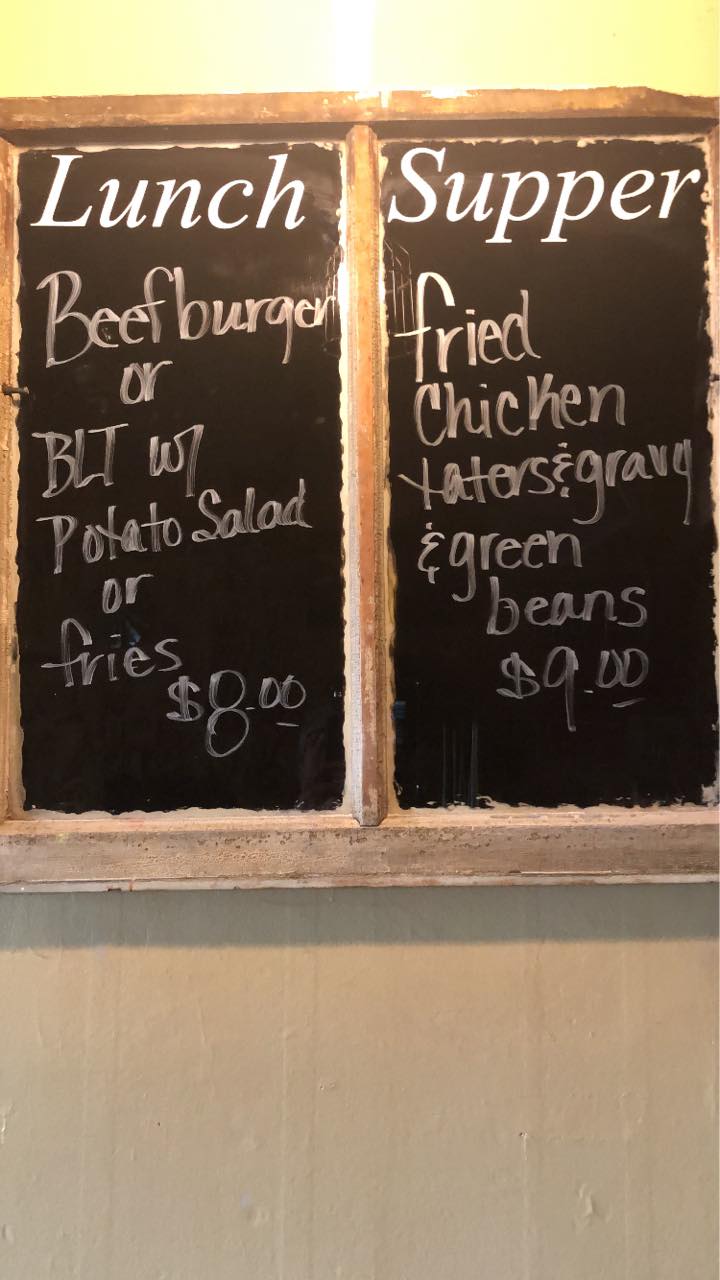 Lunch
Beefburger
or
BLT w/
Potato Salad
or
fries
$8.00
Supper
fried
Chicken
taters & gravy
& green
beans
$9.00